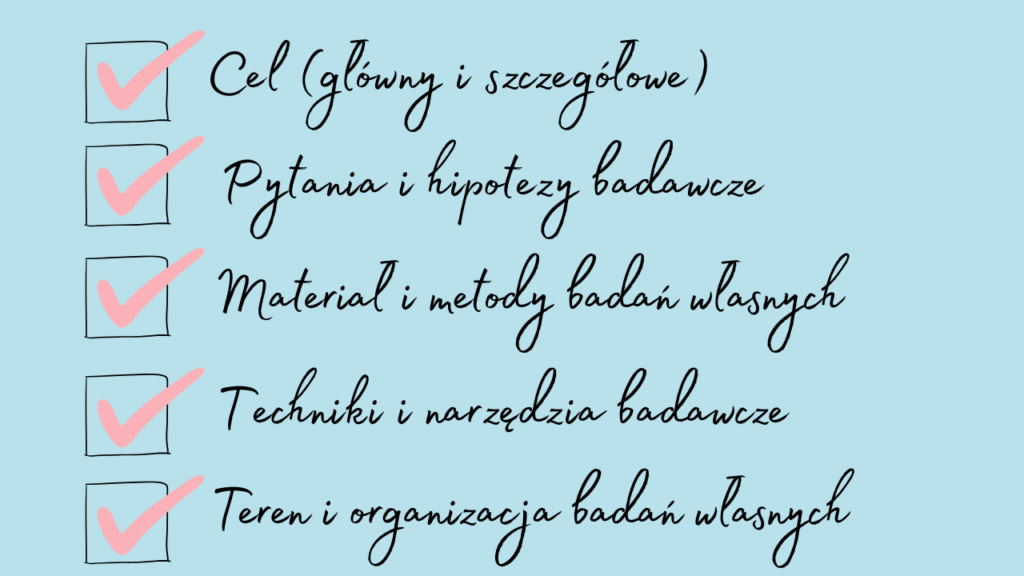 Cel (główny i szczegółowe)
Pytania i hipotezy badawcze
Materiał i metody badań własnych
Techniki i narzędzia badawcze
Teren i organizacja badań własnych